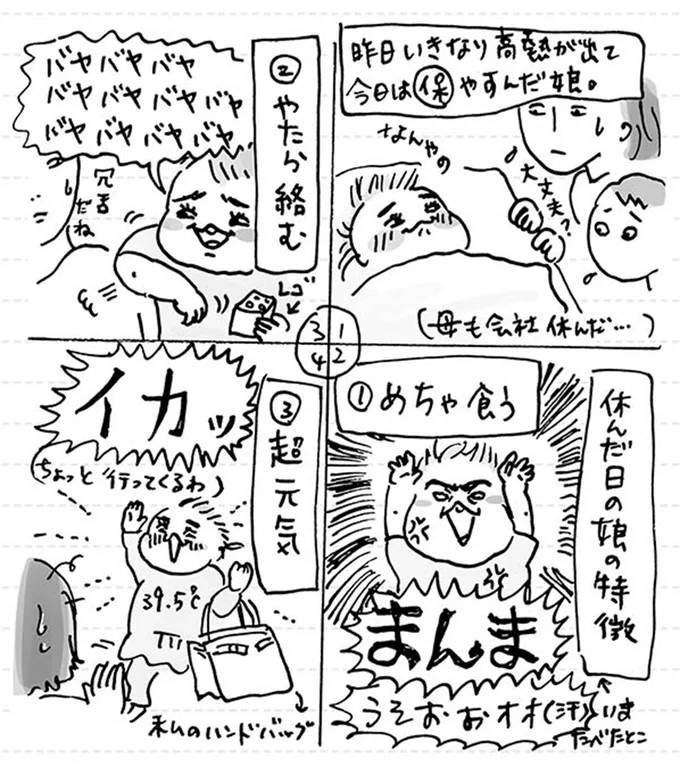 昨日いきなり高熱が出て
今日は保やすんだ娘。
なんやの
大丈夫?
(母も会社休んだ…)
3 1
4 2
休んだ日の娘の特徴
①めちゃ食う
まんま
うそおおオオ(汗)
いま
たべたとこ
②やたら絡む
バヤバヤバヤ
バヤバヤバヤバヤ
バヤバヤバヤバヤ
冗舌
だね
レゴ
③超元気
イカッ
(ちょっと行ってくるわ)
39.5℃
私のハンドバッグ